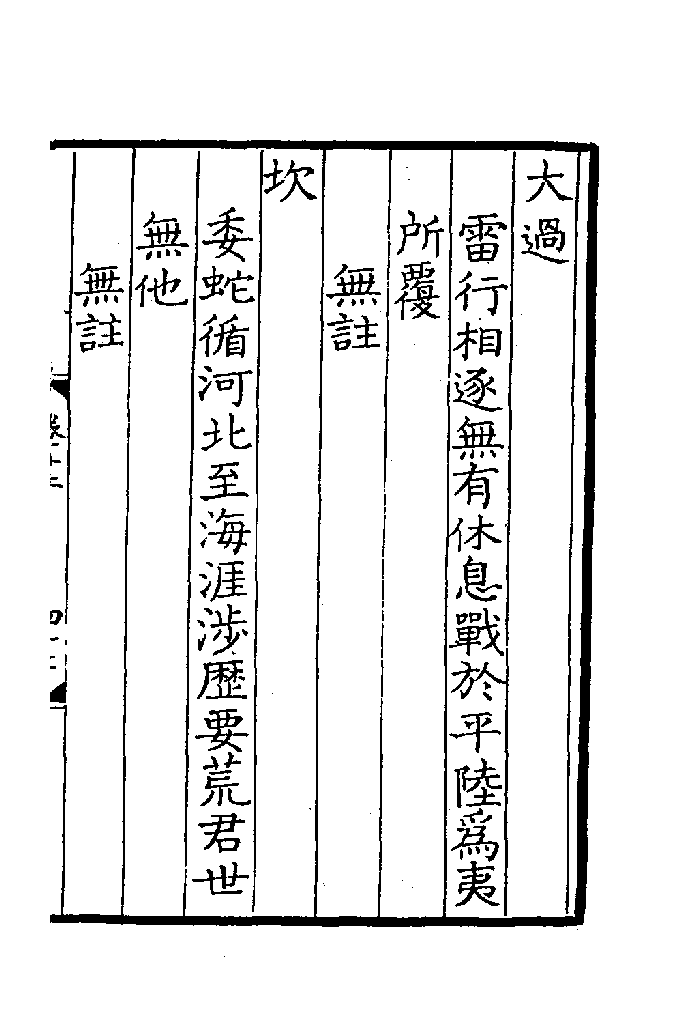 大過
雷行相逐無有休息戰於平陸爲夷
所覆
無註
坎
委蛇循河北至海涯涉歴要荒君世
無他
無註